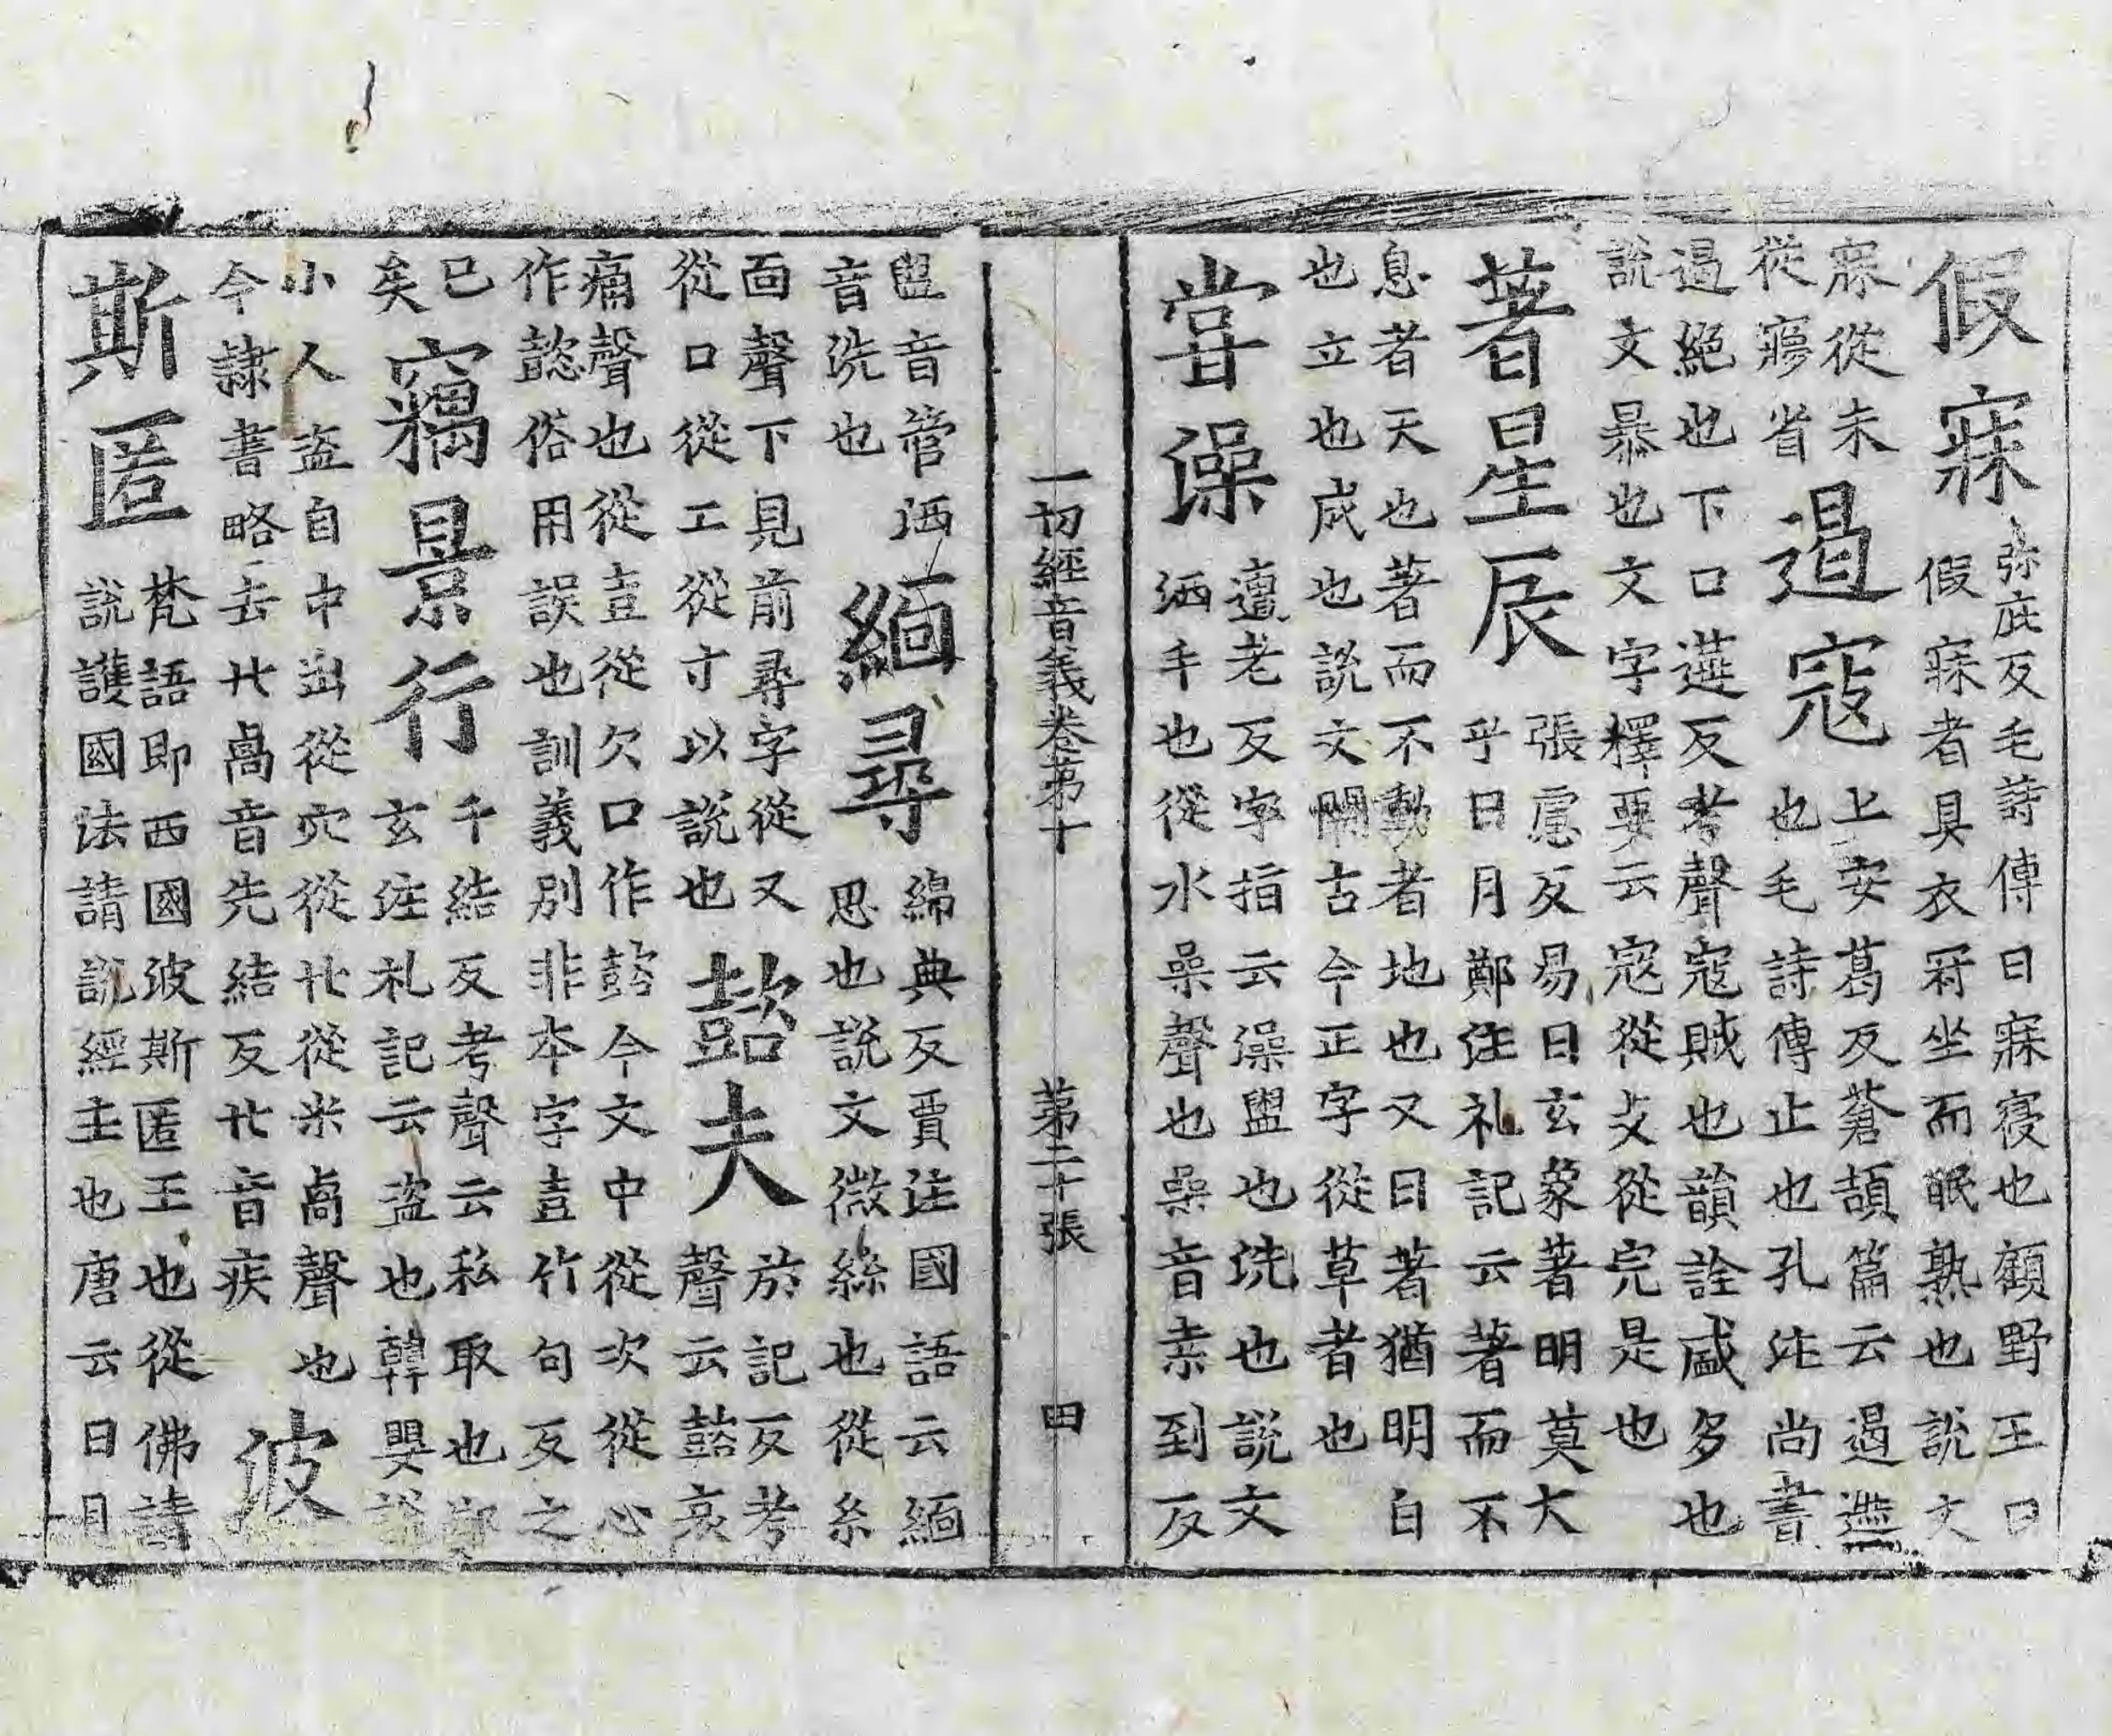 假寐弥庇反毛詩傳曰寐寑也顧野王曰
假寐者具衣冠坐而眠熟也說文
寐從未
從㝱省
遏寇上安葛反蒼頡篇云遏遮
也毛詩傳止也孔注尚書
遏絕也下口遘反考聲寇賊也韻詮盛多也
說文暴也文字釋要云寇從攴從完是也
著星辰張慮反易曰玄象著明莫大
乎日月鄭注礼記云著而不
息者天也著而不動者地也又曰著猶明白
也立也成也說文闕古今正字從草者也
甞澡遭老反字指云澡盥也洗也說文
洒手也從水喿聲也喿音桒到反
一切經音義卷苐十 苐二十張 田
盥音管洒
音洗也
緬尋綿典反賈注國語云緬
思也說文微絲也從糸
面聲下見前尋字從又
從口從工從寸以說也
㰻夫於記反考
聲云㰻哀
痛聲也從壴從欠口作㰻今文中從次從心
作懿俗用誤也訓義別非本字壴竹句反之
已
矣
竊景行千結反考聲云私取也鄭
玄注礼記云盗也韓嬰說
小人盗自中出從穴從廿從米卨聲也
今隸書略去廿卨音先結反廿音疾
波
斯匿梵語即西國波斯匿王也從佛請
說護國法請說經主也唐云日月